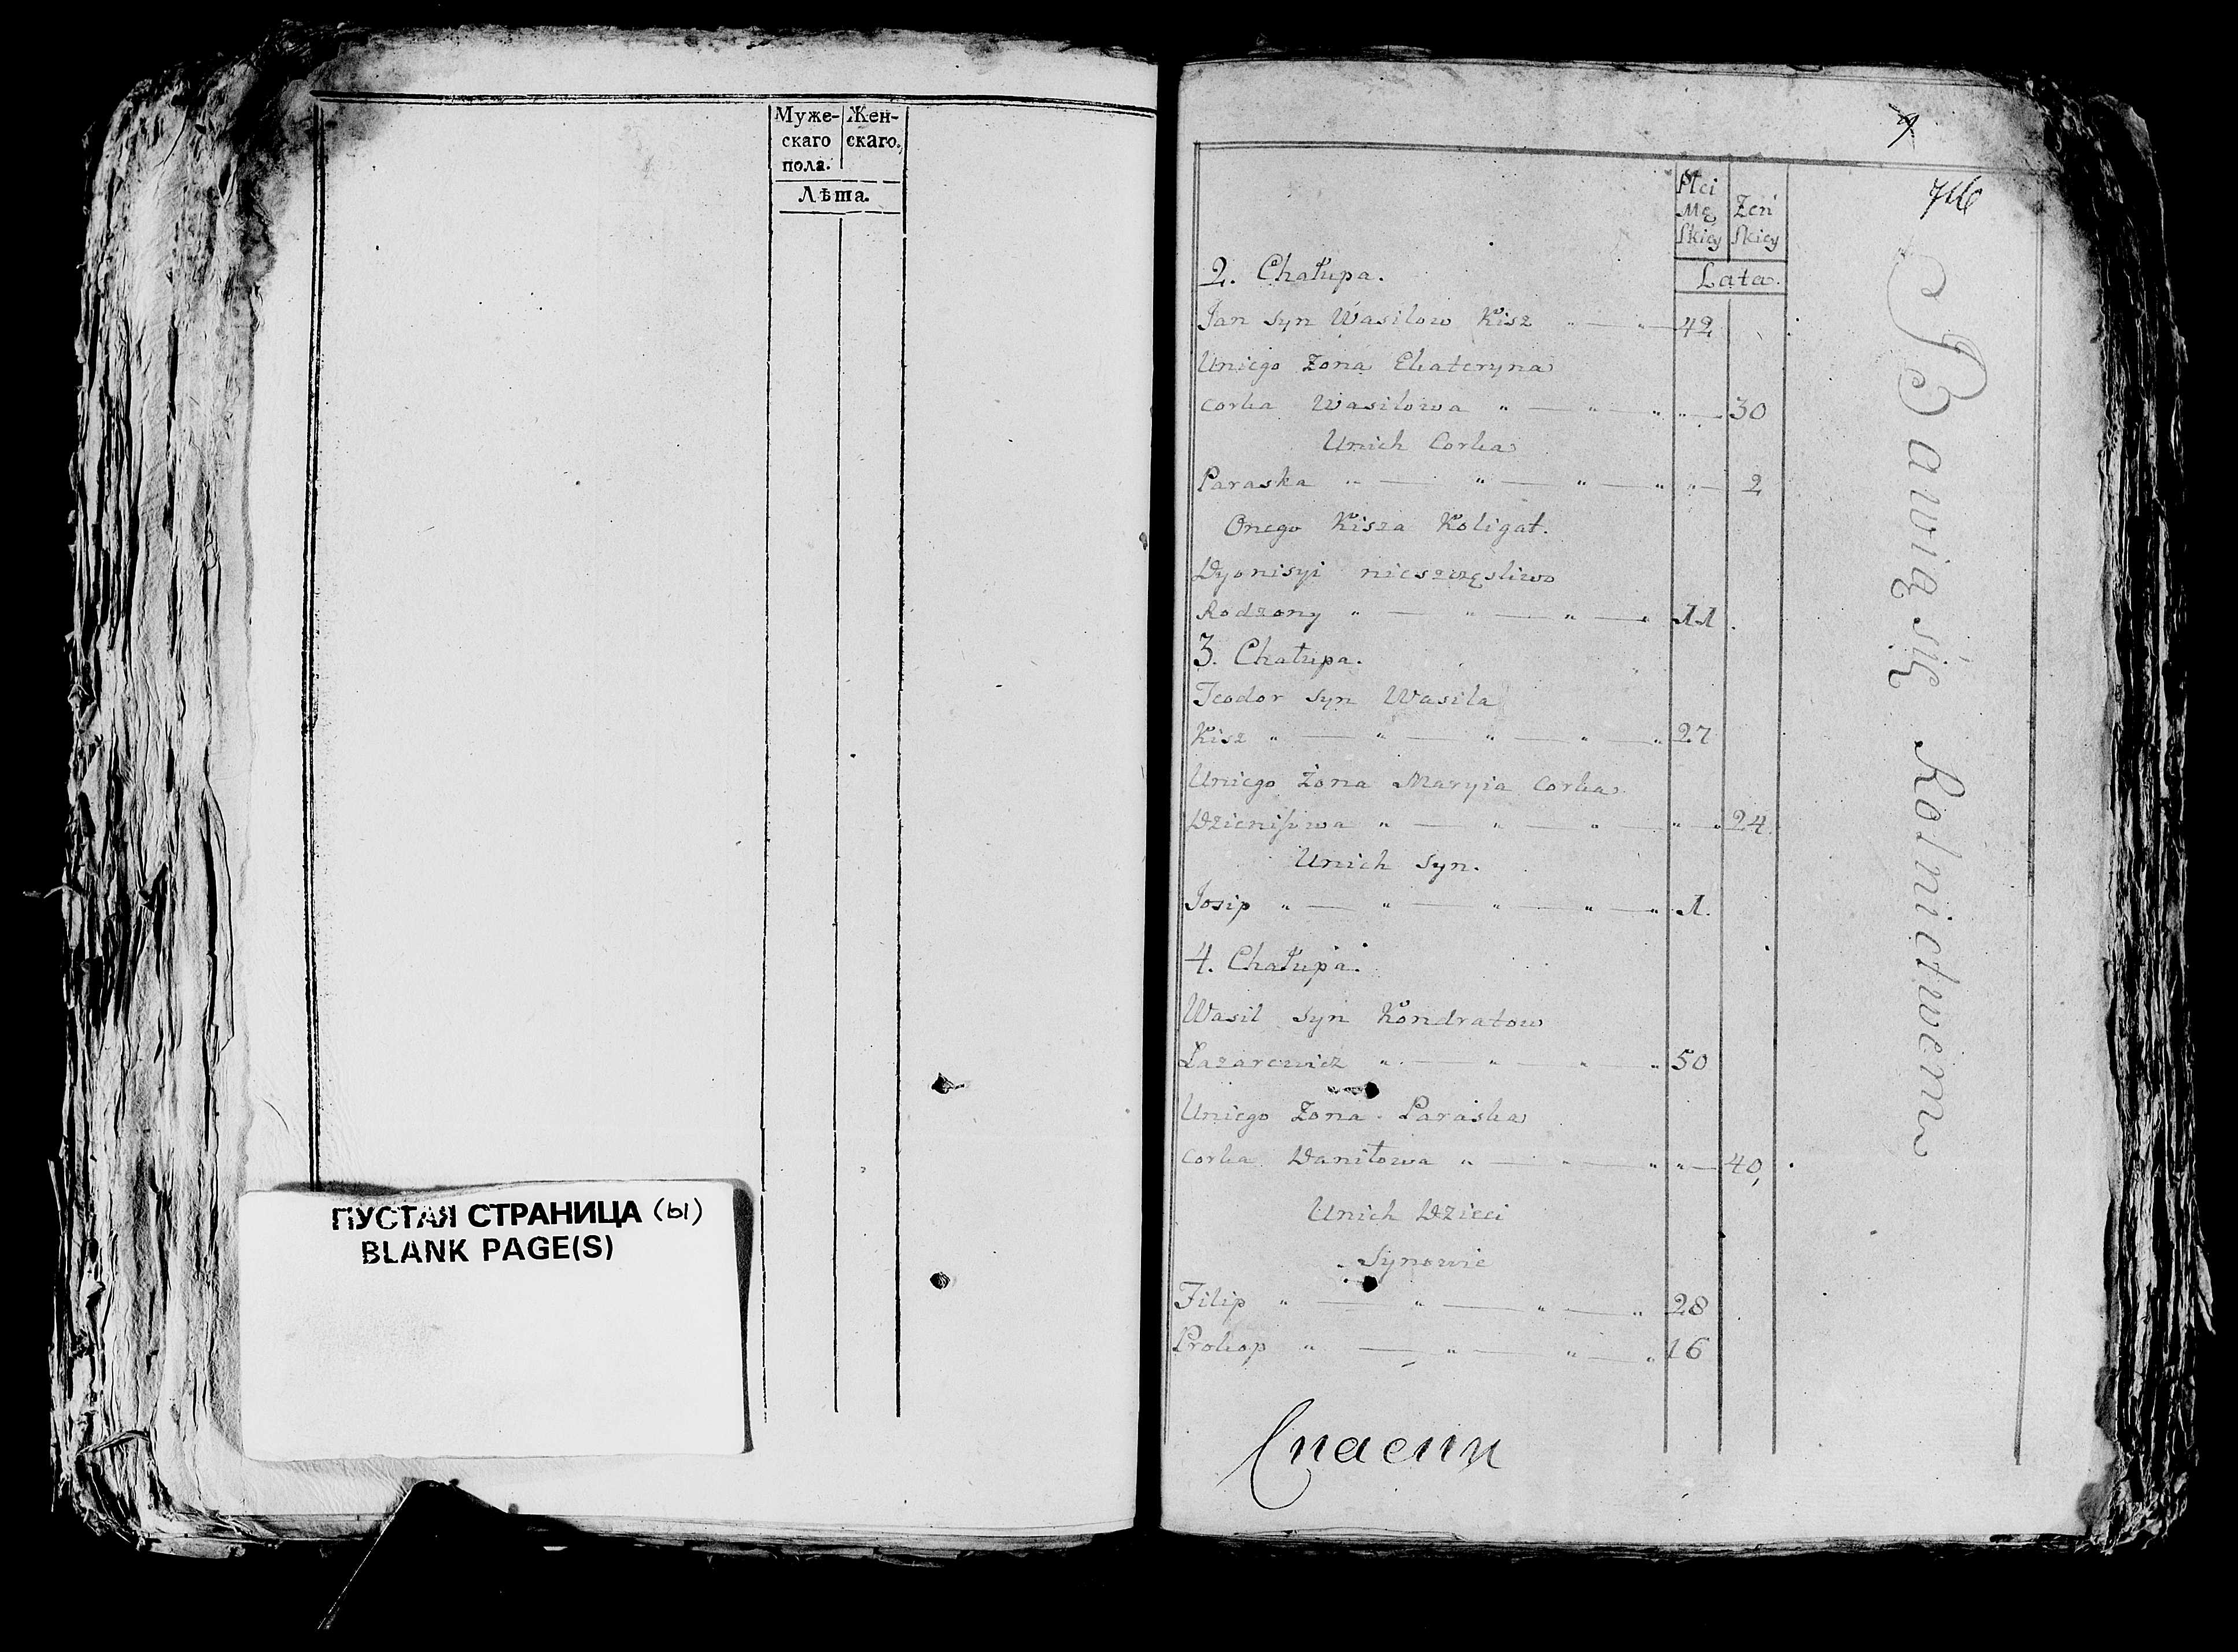 Муже-
скаго
пола.
Жен-
скаго.
Лѣта.
ПУСТАЯ СТРАНИЦА (ы)
BLANK PAGE(S)
9
Płci
Mę
skiey
Żeń
skiey
Lata.
2. Chałupa.
Jan syn Wasilow Kisz " — " — 42
Uniego Żona Ekateryna
corka Wasilowa " — " — " " — 30
Unich Corka
Paraska " — " — " — " " — 2
Onego Kisza Koligat.
Dyonisyi nieszczęsliwo
Rodzony " — " — " — " 11
3. Chałupa.
Teodor syn Wasila
Kisz " — " — " — " — " 27
Uniego Żona Maryia Corka
Dzienisowa " — " — " — " " 24
Unich syn.
Josip " — " — " — " — " 1.
4. Chałupa.
Wasil syn Kondratow
Łazarewicz " — " — " — " 50
Uniego Żona Paraska
corka Daniłowa " — " — " " — 40,
Unich Dzieci
Synowie
Filip " — " — " — " 28
Prokop " — " — " — " 16
Bawią się Rolnictwem